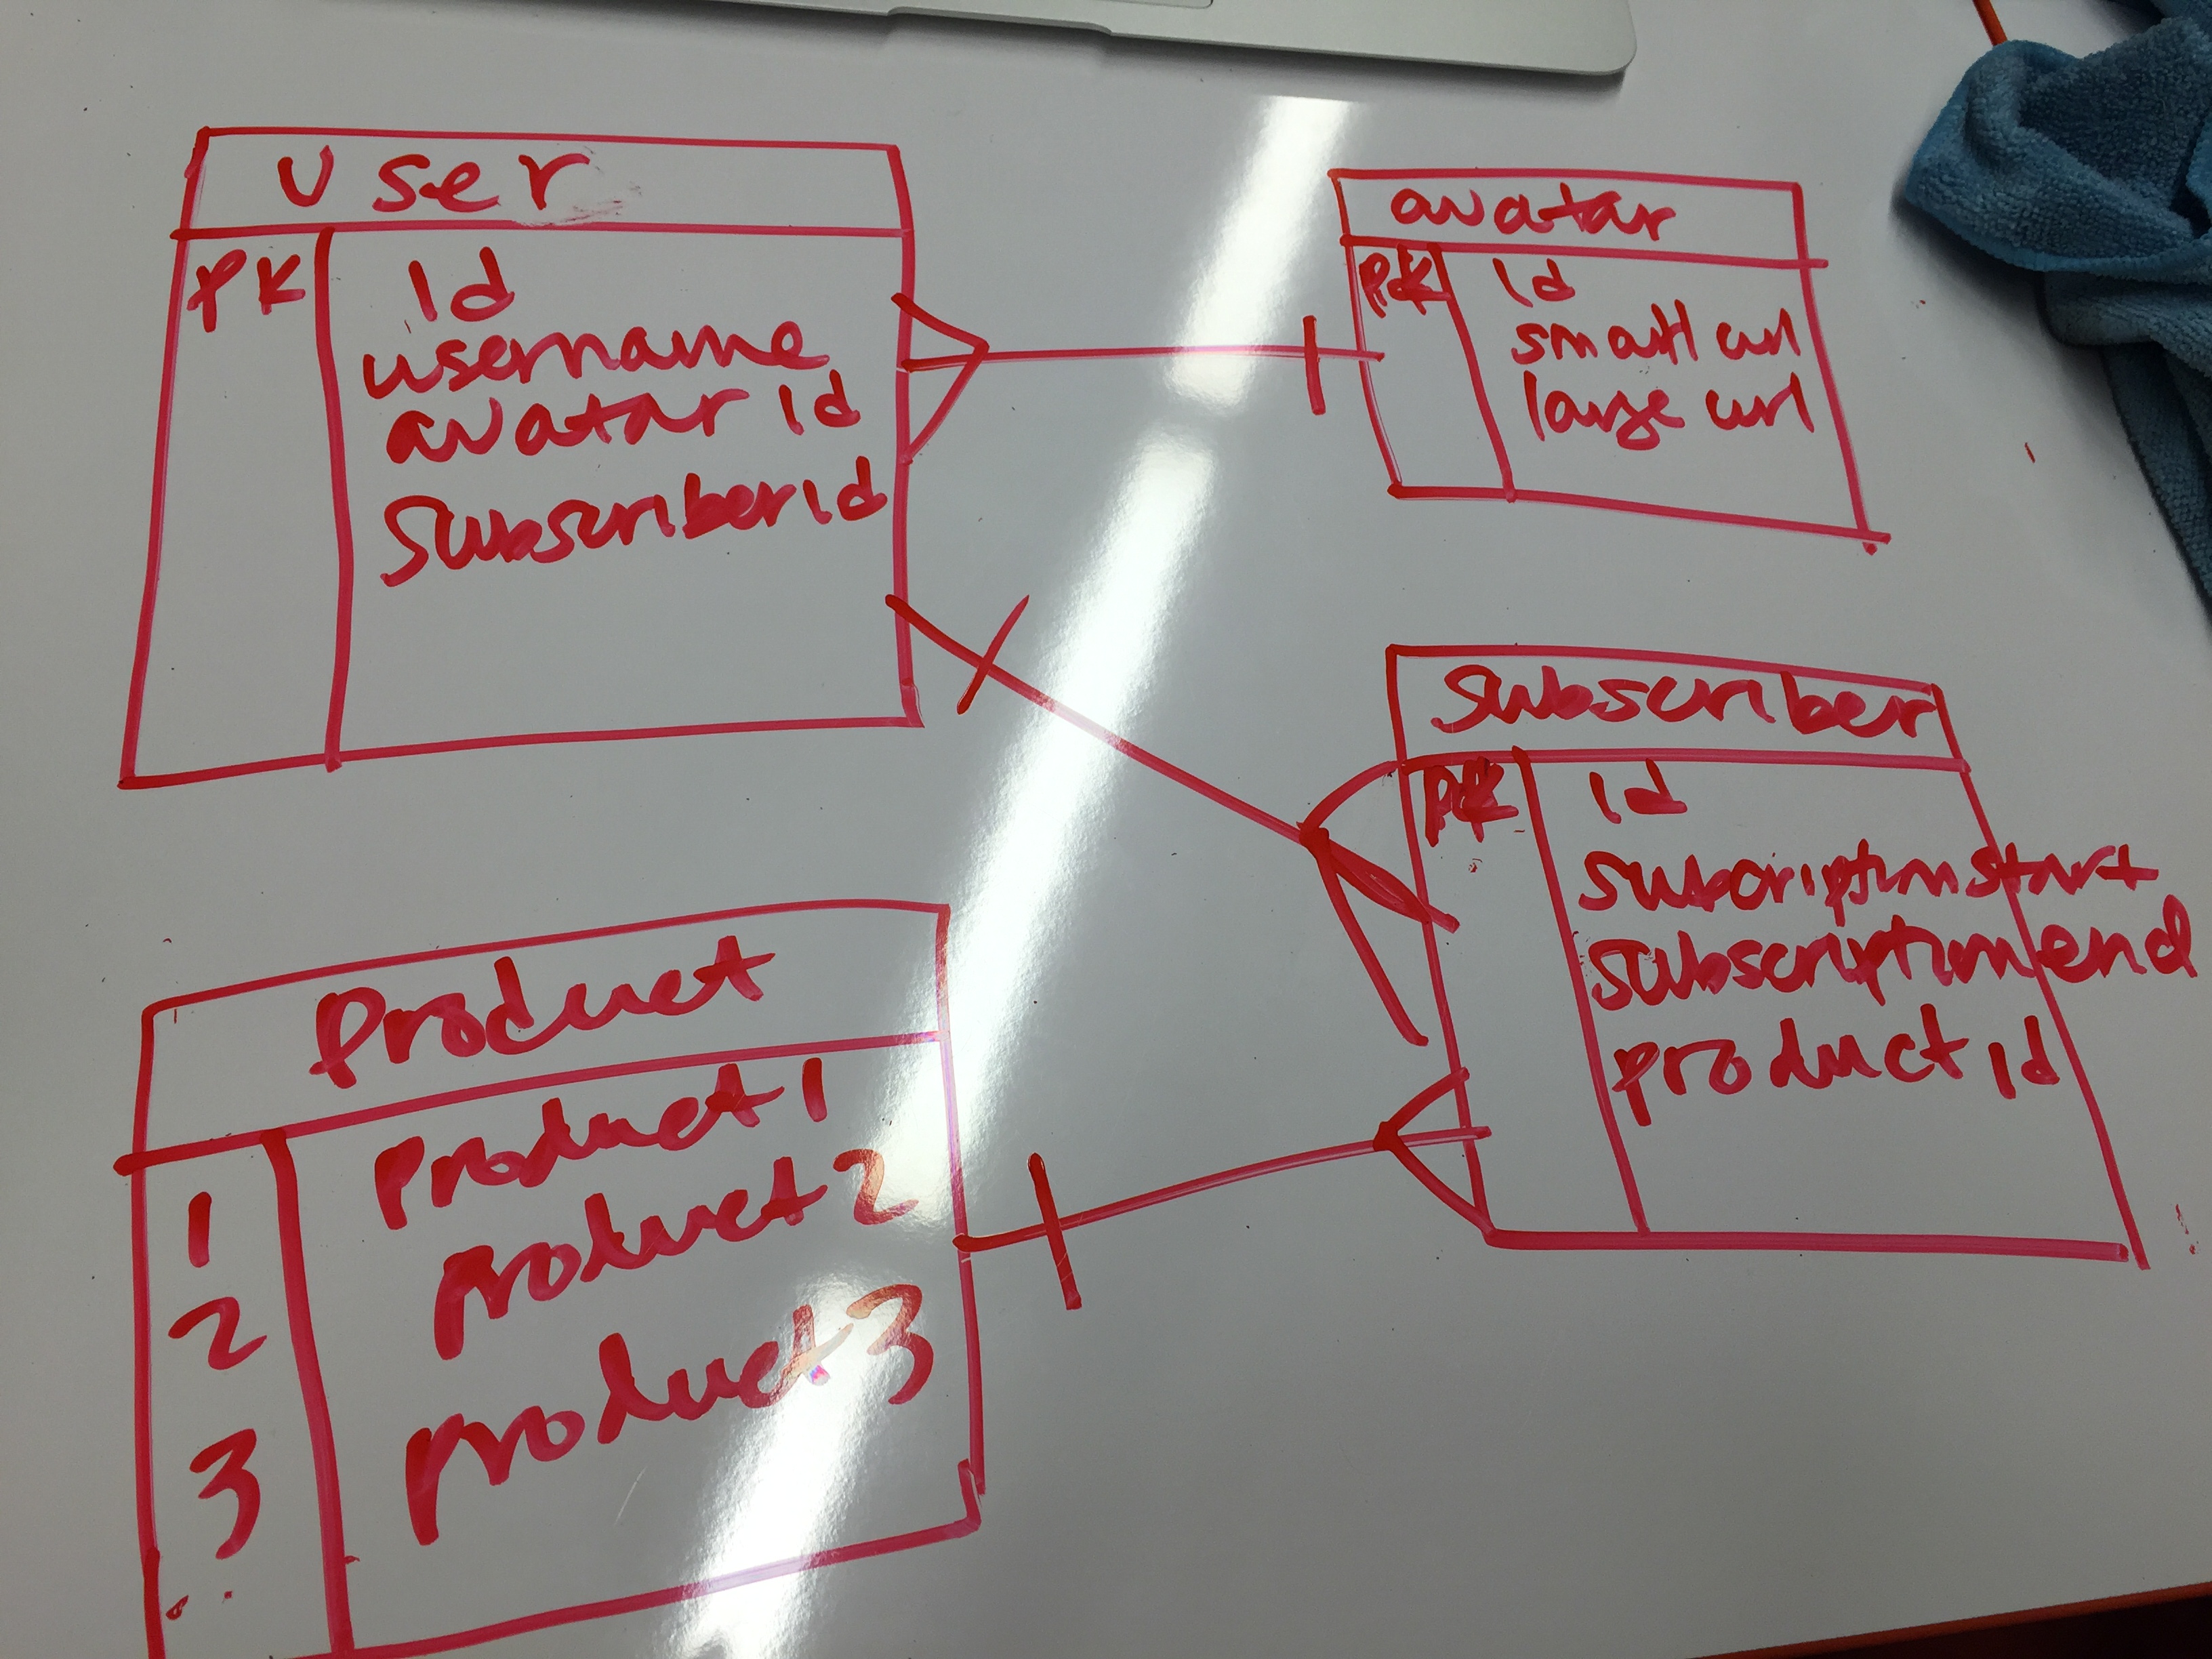 User
PK
Id
username
avatar Id
Subscriber Id
avatar
PK
Id
small url
large url
Subscriber
PK
Id
subscription start
subscription end
product Id
Product
1
Product 1
2
product 2
3
product 3